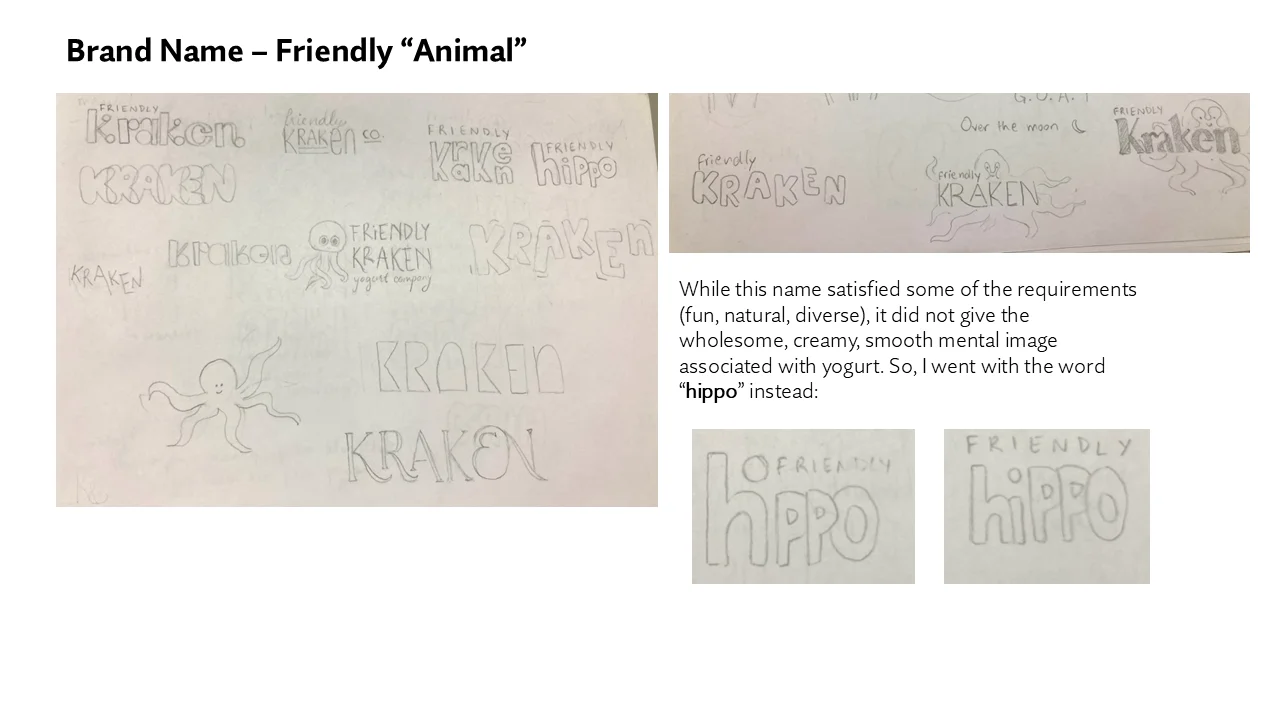 Brand Name – Friendly “Animal”
FRIENDLY
Kraken
friendly
KRAKEN CO.
FRIENDLY
Krke
KaKn
FRIENDLY
hiPPo
KRAKEN
Kraken
FRIENDLY
KRAKEN
yogurt company
KRAKEN
KRAKEN
KRAKEN
KRAKEN
G.O.A.T
Over the moon
FRIENDLY
Kraken
friendly
KRAKEN
friendly
KRAKEN
While this name satisfied some of the requirements
(fun, natural, diverse), it did not give the
wholesome, creamy, smooth mental image
associated with yogurt. So, I went with the word
“hippo” instead:
FRIENDLY
hiPPO
FRIENDLY
hiPPO